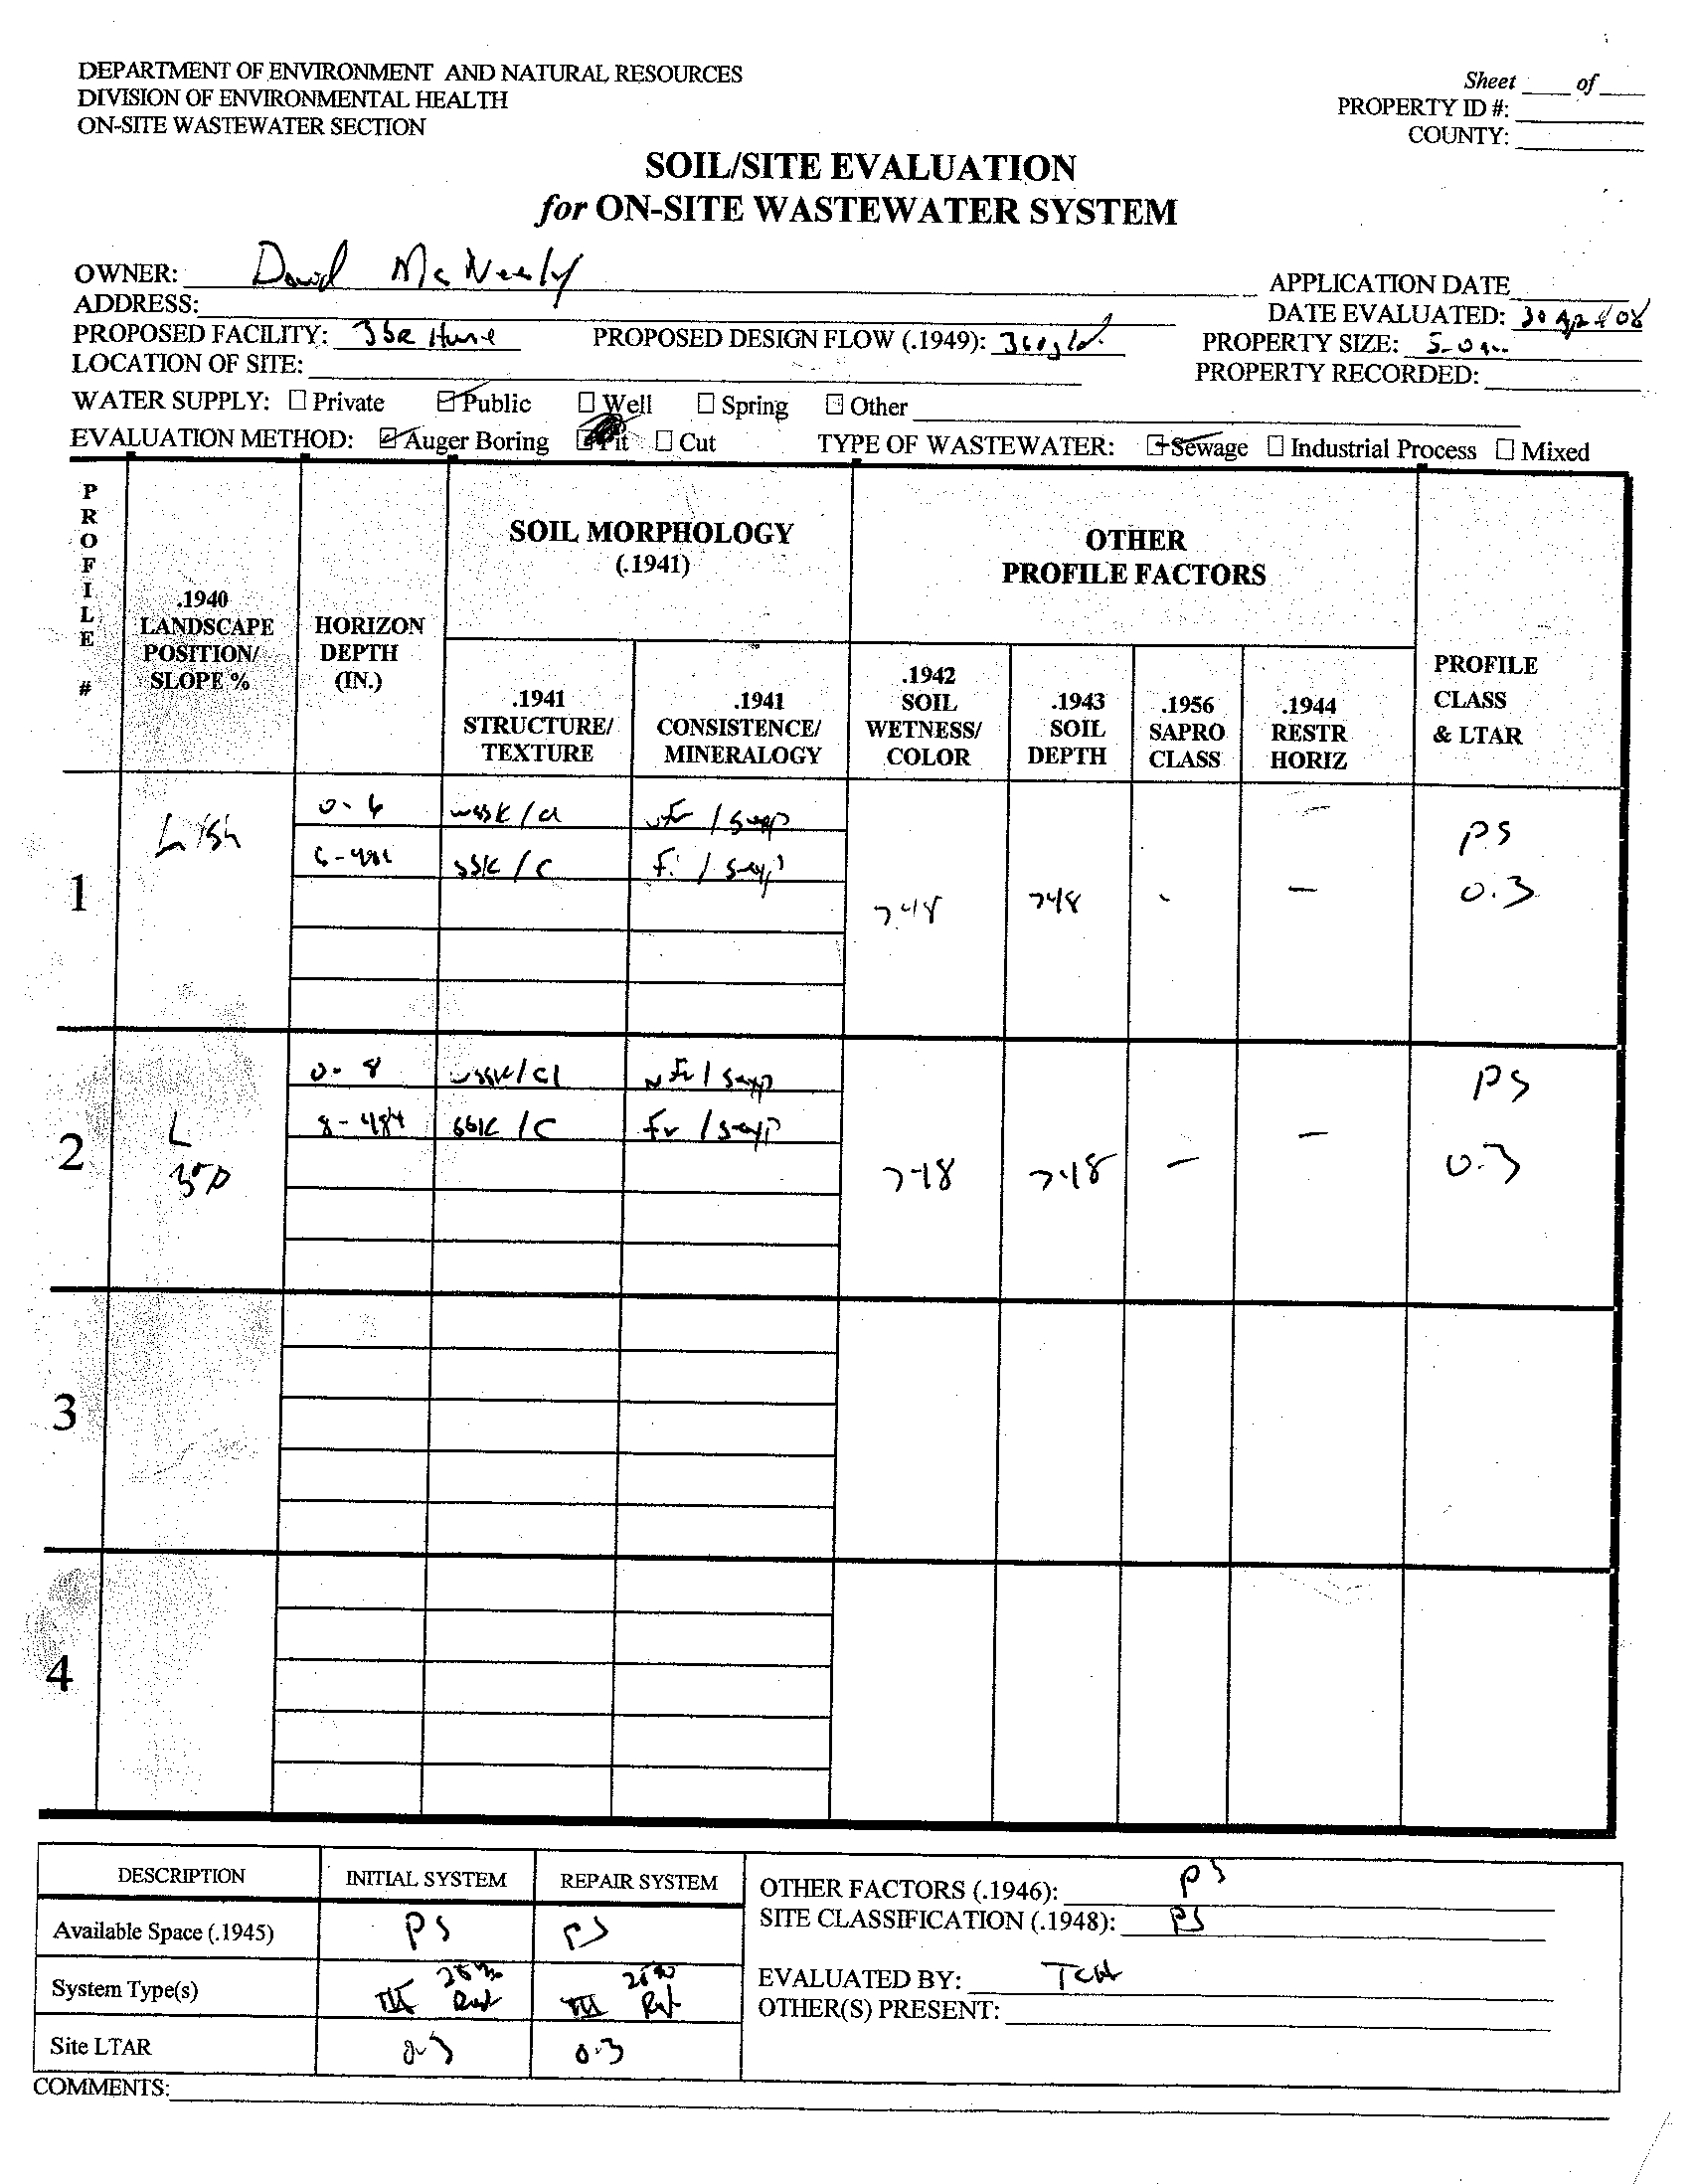 DEPARTMENT OF ENVIRONMENT AND NATURAL RESOURCES
DIVISION OF ENVIRONMENTAL HEALTH
ON-SITE WASTEWATER SECTION
Sheet ____ of ____
PROPERTY ID #:
COUNTY:
SOIL/SITE EVALUATION
for ON-SITE WASTEWATER SYSTEM
OWNER: David McNeely
ADDRESS:
PROPOSED FACILITY: 3 BR House PROPOSED DESIGN FLOW (.1949): 360 g/d
LOCATION OF SITE:
APPLICATION DATE
DATE EVALUATED: 30 Apr 08
PROPERTY SIZE:
PROPERTY RECORDED:
WATER SUPPLY: Private Public Well Spring Other
EVALUATION METHOD: Auger Boring Pit Cut TYPE OF WASTEWATER: Sewage Industrial Process Mixed
PROFILE #
.1940 LANDSCAPE POSITION/ SLOPE %
HORIZON DEPTH (IN.)
SOIL MORPHOLOGY (.1941)
.1941 STRUCTURE/ TEXTURE
.1941 CONSISTENCE/ MINERALOGY
OTHER PROFILE FACTORS
.1942 SOIL WETNESS/ COLOR
.1943 SOIL DEPTH
.1956 SAPRO CLASS
.1944 RESTR HORIZ
PROFILE CLASS & LTAR
1
L
0-6 wssk/cl vfr /
6-48+ ssk / C Fi /
>48 >48 - -
PS
0.3
2
L
0-8 wssk/cl vfr /
8-48+ ssk / C Fr /
>48 >48 - -
PS
0.3
3
4
DESCRIPTION INITIAL SYSTEM REPAIR SYSTEM
Available Space (.1945) PS PS
System Type(s) III 25% Red III 25% Red
Site LTAR 0.3 0.3
OTHER FACTORS (.1946): PS
SITE CLASSIFICATION (.1948): PS
EVALUATED BY: TCH
OTHER(S) PRESENT:
COMMENTS: